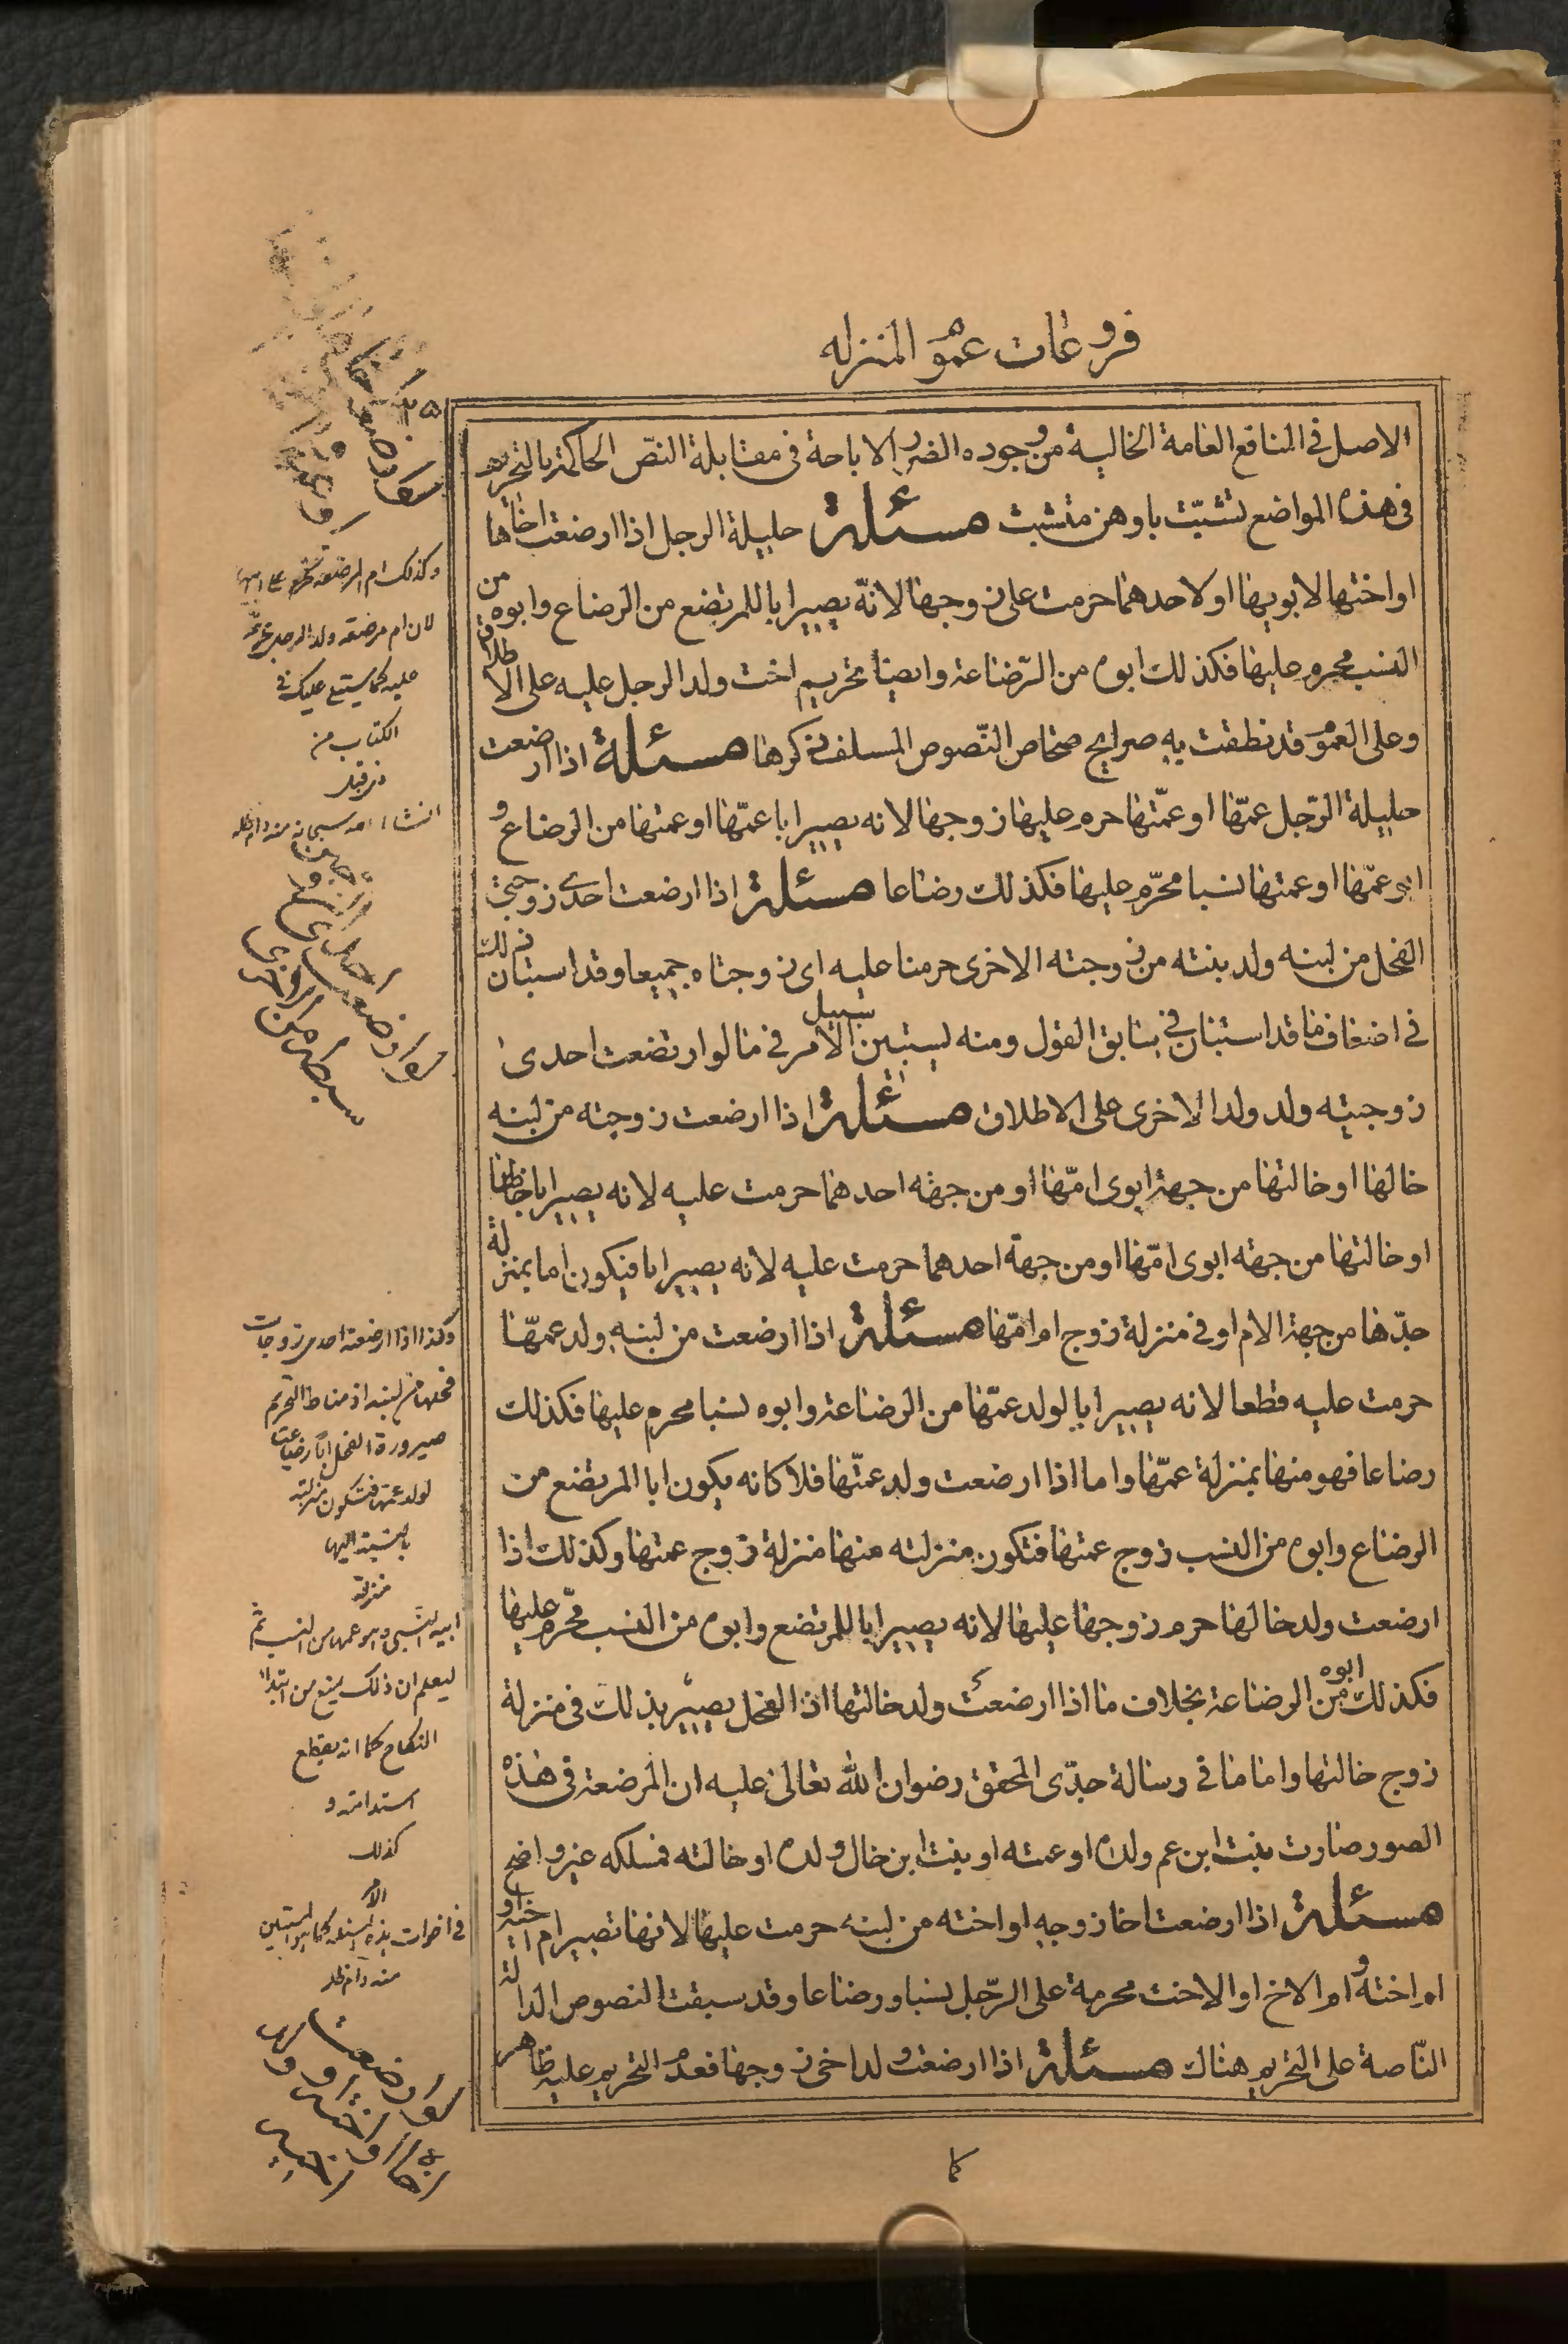 فروعات عموم المنزله
الاصل فى المنافع العامة الخالية من وجوده الضرر الاباحة فى مقابلة النصّ الحاكمة بالتحريم
فى هذه المواضع تشبّث باوهن متشبث مسئلة حليلة الرجل اذا ارضعت اخاها
او اختها لابويها او لاحدهما حرمت على زوجها لانّه يصير ابا للمرتضع من الرضاع وابوه من
النسب محرم عليها فكذلك ابوه من الرّضاعة وايضا تحريم اخت ولد الرجل عليه على الاطلاق
وعلى العموم قد نطقت به صرايح صحاح النّصوص المسلف ذكرها مسئلة اذا ارضعت
حليلة الرّجل عمّها او عمّتها حرم عليها زوجها لانه يصير ابا عمّها او عمتها من الرضاع و
ابو عمّها او عمتها نسبا محرّم عليها فكذلك رضاعا مسئلة اذا ارضعت احدى زوجتى
الفحل من لبنه ولد بنته من زوجته الاخرى حرمتا عليه اى زوجتاه جميعا وقد استبان ذلك
فى اضعاف ما قد استبان فى سابق القول ومنه يستبين سبيل الامر فى ما لو ارتضعت احدى
زوجيته ولد ولد الاخرى على الاطلاق مسئلة اذا ارضعت زوجته من لبنه
خالها او خالتها من جهة ابوى امّها او من جهة احدهما حرمت عليه لانه يصير ابا خالها
او خالتها من جهة ابوى امّها او من جهة احدهما حرمت عليه لانه يصير ابا فيكون اما بمنزلة
جدّها من جهة الام او فى منزلة زوج ام امّها مسئلة اذا ارضعت من لبنه ولد عمّها
حرمت عليه قطعا لانه يصير ابا لولد عمّها من الرضاعة وابوه نسبا محرم عليها فكذلك
رضاعا فهو منها بمنزلة عمّها واما اذا ارضعت ولد عمّتها فلا كانه يكون ابا المرتضع من
الرضاع وابوه من النسب زوج عمتها فتكون منزلته منها منزلة زوج عمتها وكذلك اذا
ارضعت ولد خالها حرم زوجها عليها لانه يصير ابا للمرتضع وابوه من النسب محّرم عليها
فكذلك ابوه من الرضاعة بخلاف ما اذا ارضعت ولد خالتها اذ الفحل يصير بذلك فى منزلة
زوج خالتها واما ما فى رسالة جدّى المحقق رضوان الله تعالى عليه ان المرضعة فى هذه
الصور صارت بنت ابن عم ولده او عمته او بنت ابن خال ولده او خالته فمسلكه غير واضح
مسئلة اذا ارضعت اخا زوجه او اخته من لبنه حرمت عليها لانها تصير ام اخيه او
ام اخته وام الاخ او الاخت محرمة على الرّجل نسبا ورضاعا وقد سبقت النصوص الدالة
النّاصة على التحريم هناك مسئلة اذا ارضعت ولد اخى زوجها فعدم التحريم عليه ظاهر
كما
وكذلك ام المرضعة تحرم
لان ام مرضعة ولد الرجل محرمة
عليه كما سيتلى عليك فى
الكتاب من
ذى قبل
انشاء الله سبحانه منه دام ظله
وكذا اذا ارضعت احدى زوجات
فحلها من لبنه اذ مناط التحريم
صيرورة الفحل ابا رضاعيا
لولد عمتها فتكون منزلته
بالنسبة اليها
منزلة
ابيه النسبى وهو عمها من النسب ثم
ليعلم ان ذلك يمنع من ابتداء
النكاح كما انه يقطع
استدامته و
كذلك
الامر
فى اخوات هذه المسئلة كما سيستبين
منه دام ظله